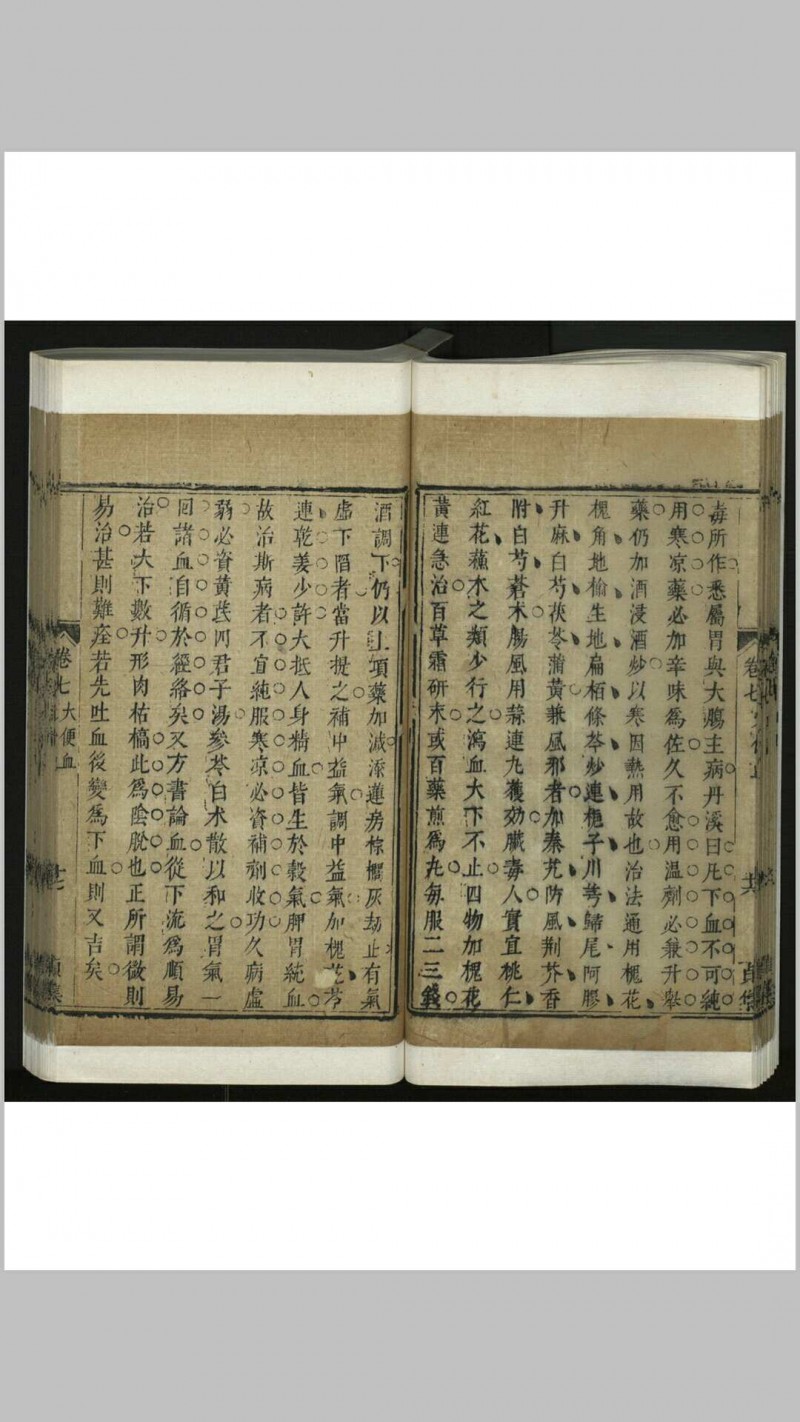 毒所作悉屬胃與大腸主病丹溪曰凡下血不可純
用寒凉藥必加辛味爲佐久不愈用溫劑必兼升舉
藥仍加酒浸酒炒以寒因熱用故也治法通用槐花
槐角地榆生地扁栢條芩炒連梔子川芎歸尾阿膠
升麻白芍茯苓蒲黃兼風邪者加秦艽防風荆芥香
附白芍蒼术腸風用蒜連丸獲効臟毒人實宜桃仁
紅花蘓木之類少行之瀉血大下不止四物加槐花
黃連急治百草霜研末或百藥煎爲丸每服二三錢
酒調下仍以上項藥加减添蓮房棕櫚灰劫止有氣
虛下陷者當升提之補中益氣調中益氣加槐花芩
連乾姜少許大抵人身精血皆生於穀氣脾胃統血
故治斯病者不宜純服寒凉必資補劑收功久病虛
弱必資黃茋四君子湯參苓白术散以和之胃氣一
回諸血自循於經絡矣又方書論血從下流爲順易
治若大下數升形肉枯槁此爲陰脫也正所謂微則
易治甚則難痊若先吐血後變爲下血則又吉矣
卷七 大便血